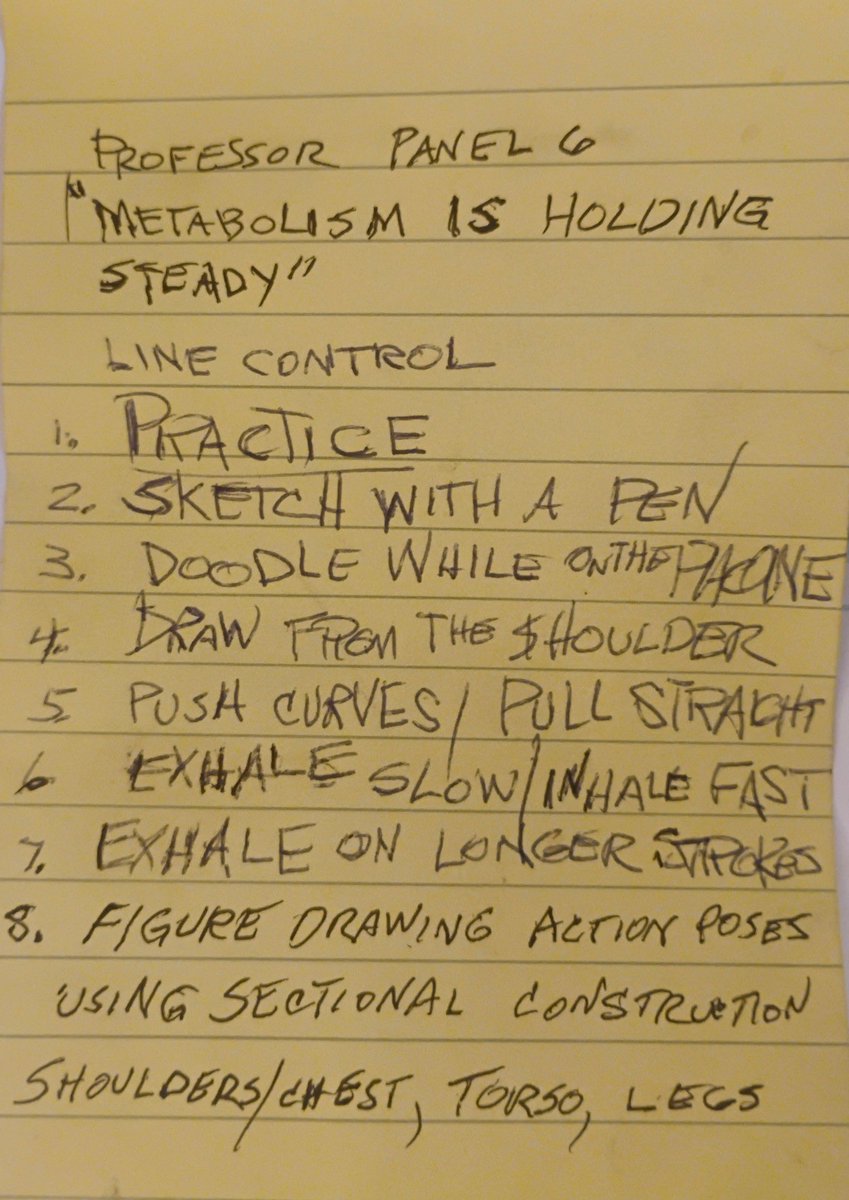 PROFESSOR PANEL 6
"METABOLISM IS HOLDING
STEADY"
LINE CONTROL
1. PRACTICE
2. SKETCH WITH A PEN
3. DOODLE WHILE ON THE PHONE
4. DRAW FROM THE SHOULDER
5 PUSH CURVES/PULL STRAIGHT
6 EXHALE SLOW/INHALE FAST
7. EXHALE ON LONGER STROKES
8. FIGURE DRAWING ACTION POSES
USING SECTIONAL CONSTRUCTION
SHOULDERS/CHEST, TORSO, LEGS